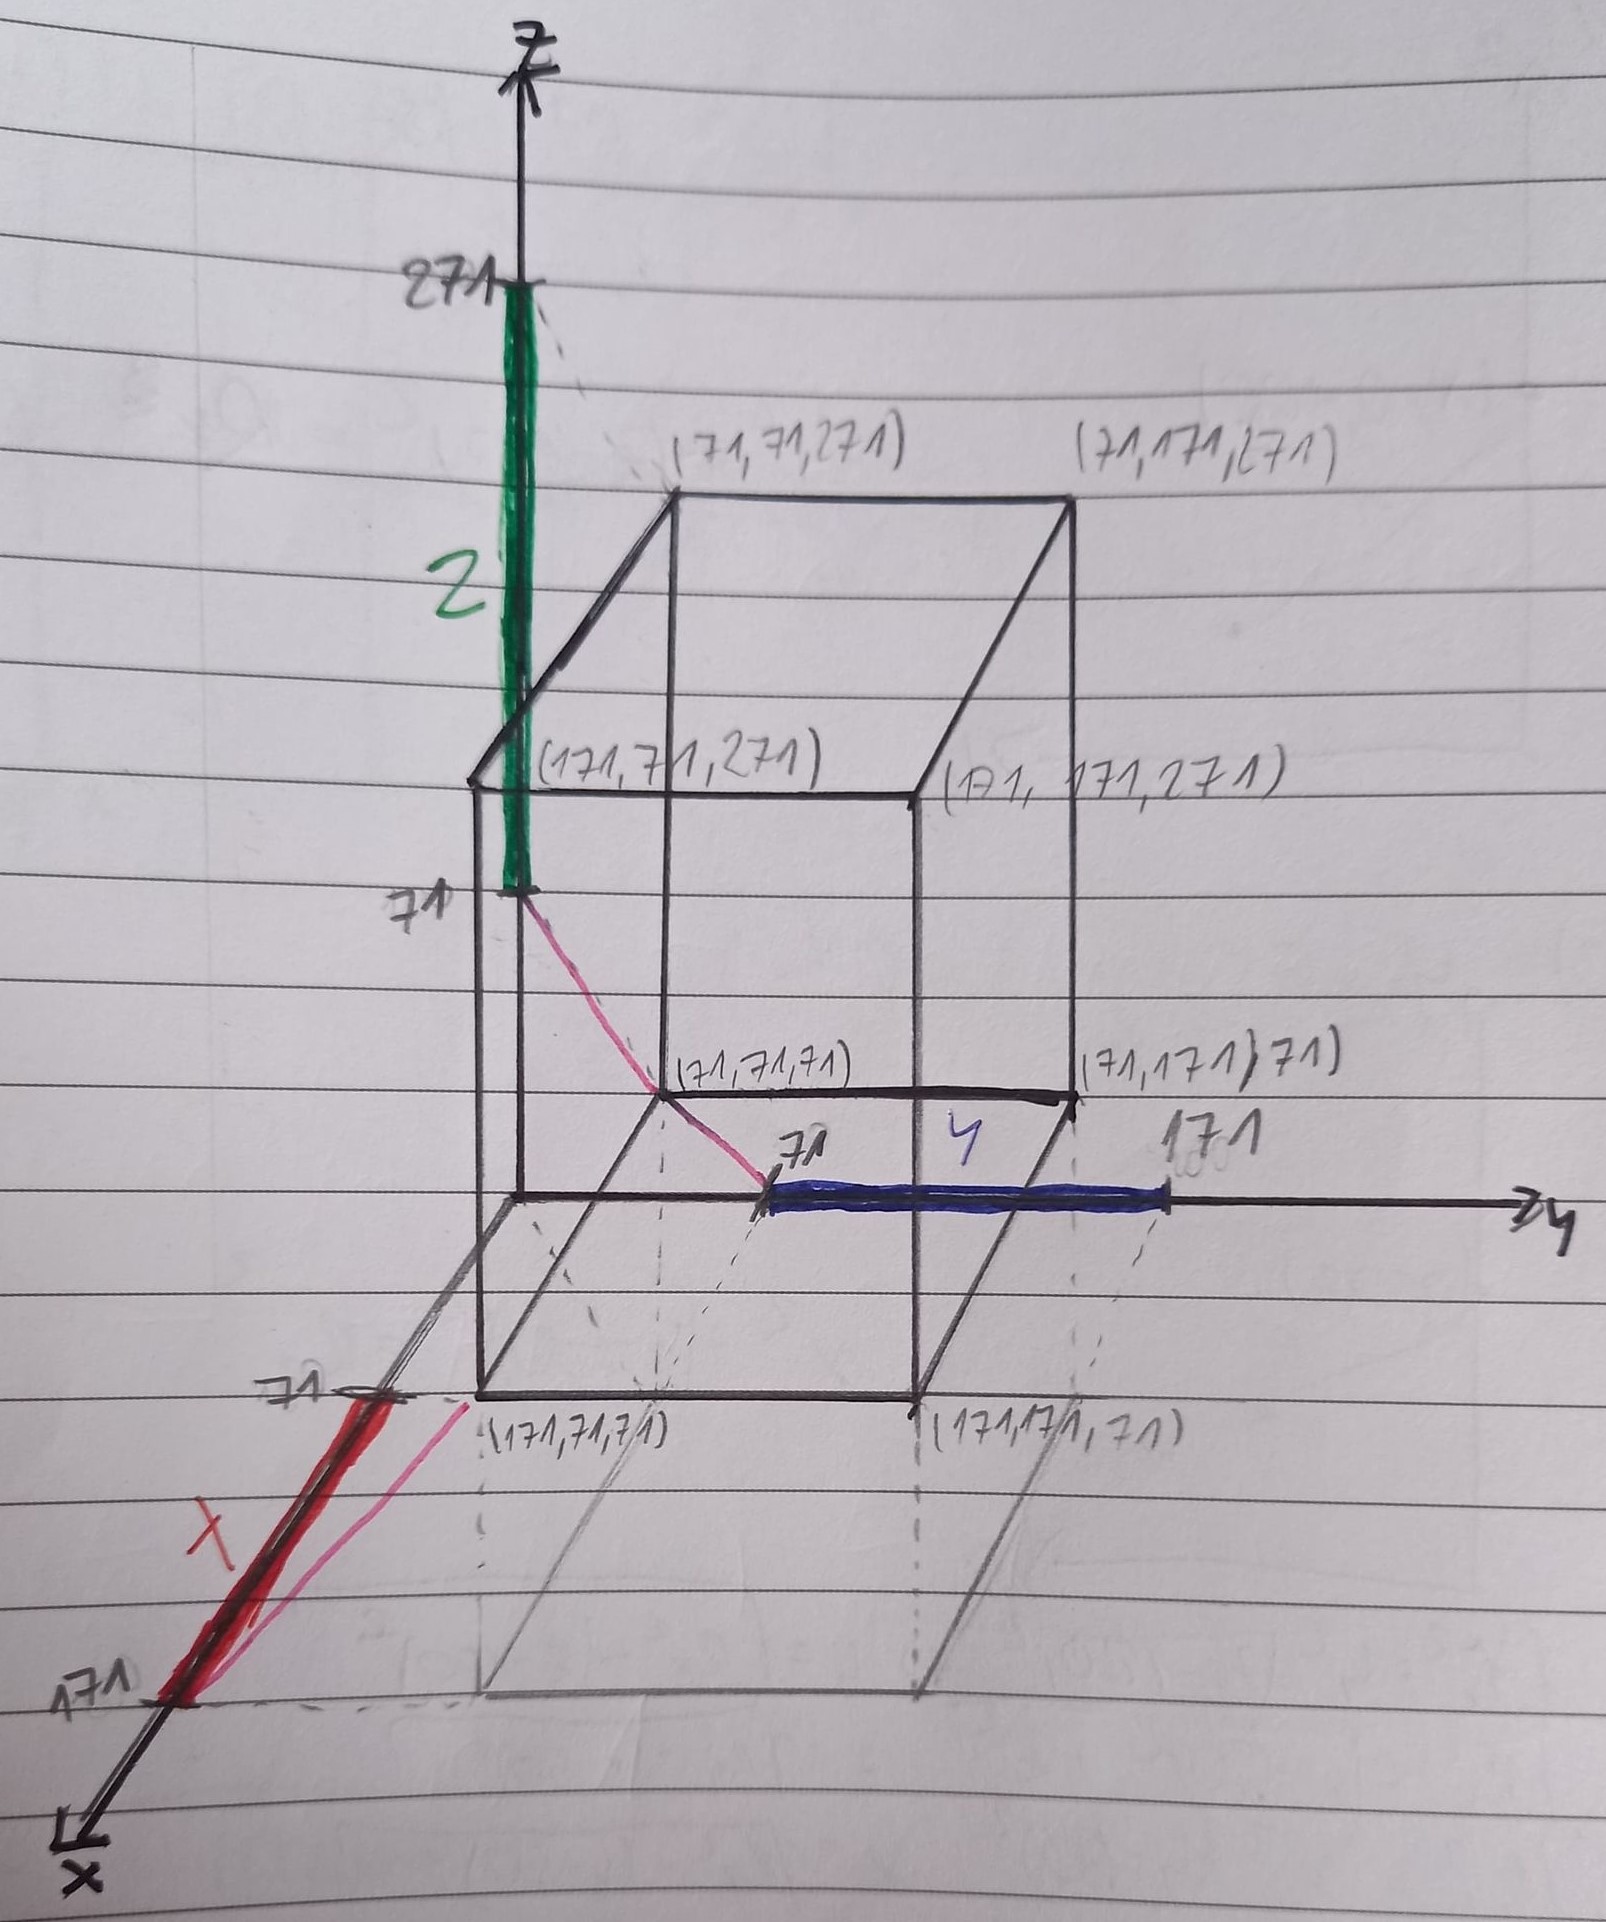 z
271
(71,71,271)
(71,171,271)
Z
(171,71,271)
(171, 171,271)
71
(71,71,71)
(71,171,71)
71
Y
171
y
71
(171,71,71)
(171,171,71)
X
171
x